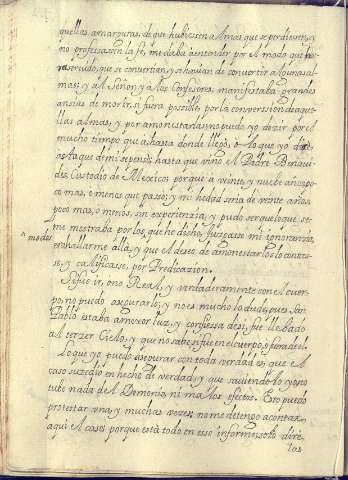 quellas amarguras, de que hubiessen Almas que se perdiessen, y
no professassen la fe, me daba a entender por el modo que he
que si se convertian, y a havian de convertir algunas al-
mas; y al Señor, y a los Confesores, manifestaba grandes
ansias de morir, si fuera possible por la conversion de aque-
llas almas, y por amonestarlas no puedo yo dezir por el
mucho tiempo que a hasta donde llegò, ò lo que yo
que di mi asenso, hasta que vino el Padre Benavi-
des, Custodio de Mexico; porque a veinte y nuebe años po-
co mas, o menos que passò; y mi hedad seria de veinte años,
poco mas, o menos, sin experienzia, y pudo ser que lo que se
me mostraba por los que he dicho, juzgasse mi ignoranzia
modo
hallarme allà, y que el deseo de amonestarlos lo conozie-
se, y calificasse, por Predicazion.
Si fue ir, ono Real, y verdaderamente con el cuer-
po, no puedo asegurarlo, y no es mucho lo dude, pues San
Pablo estaba a mexor luz, y confiessa de si, fue llebado
al terzer Cielo, y que no sabe si fue en el cuerpo, o fuera del.
Lo que yo puedo asegurar con toda verdad es, que el
caso suzediò en hecho de verdad, y que saviendolo yo no
tube nada de el Demonio, ni malos efectos. Esto puedo
protestar una, y muchas vezes; no me detengo a contar
aqui el caso, porque està todo en esse informe; solo dirè,
los